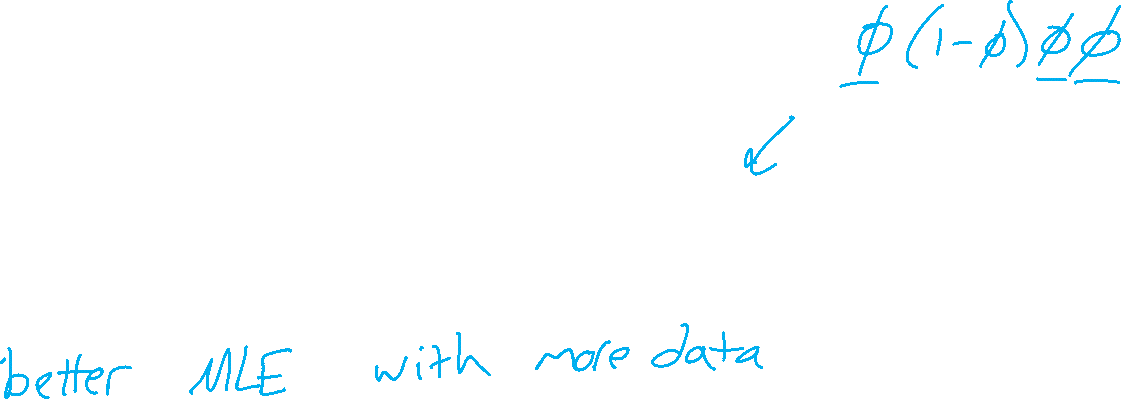 ϕ(1-ϕ)ϕϕ
better MLE with more data